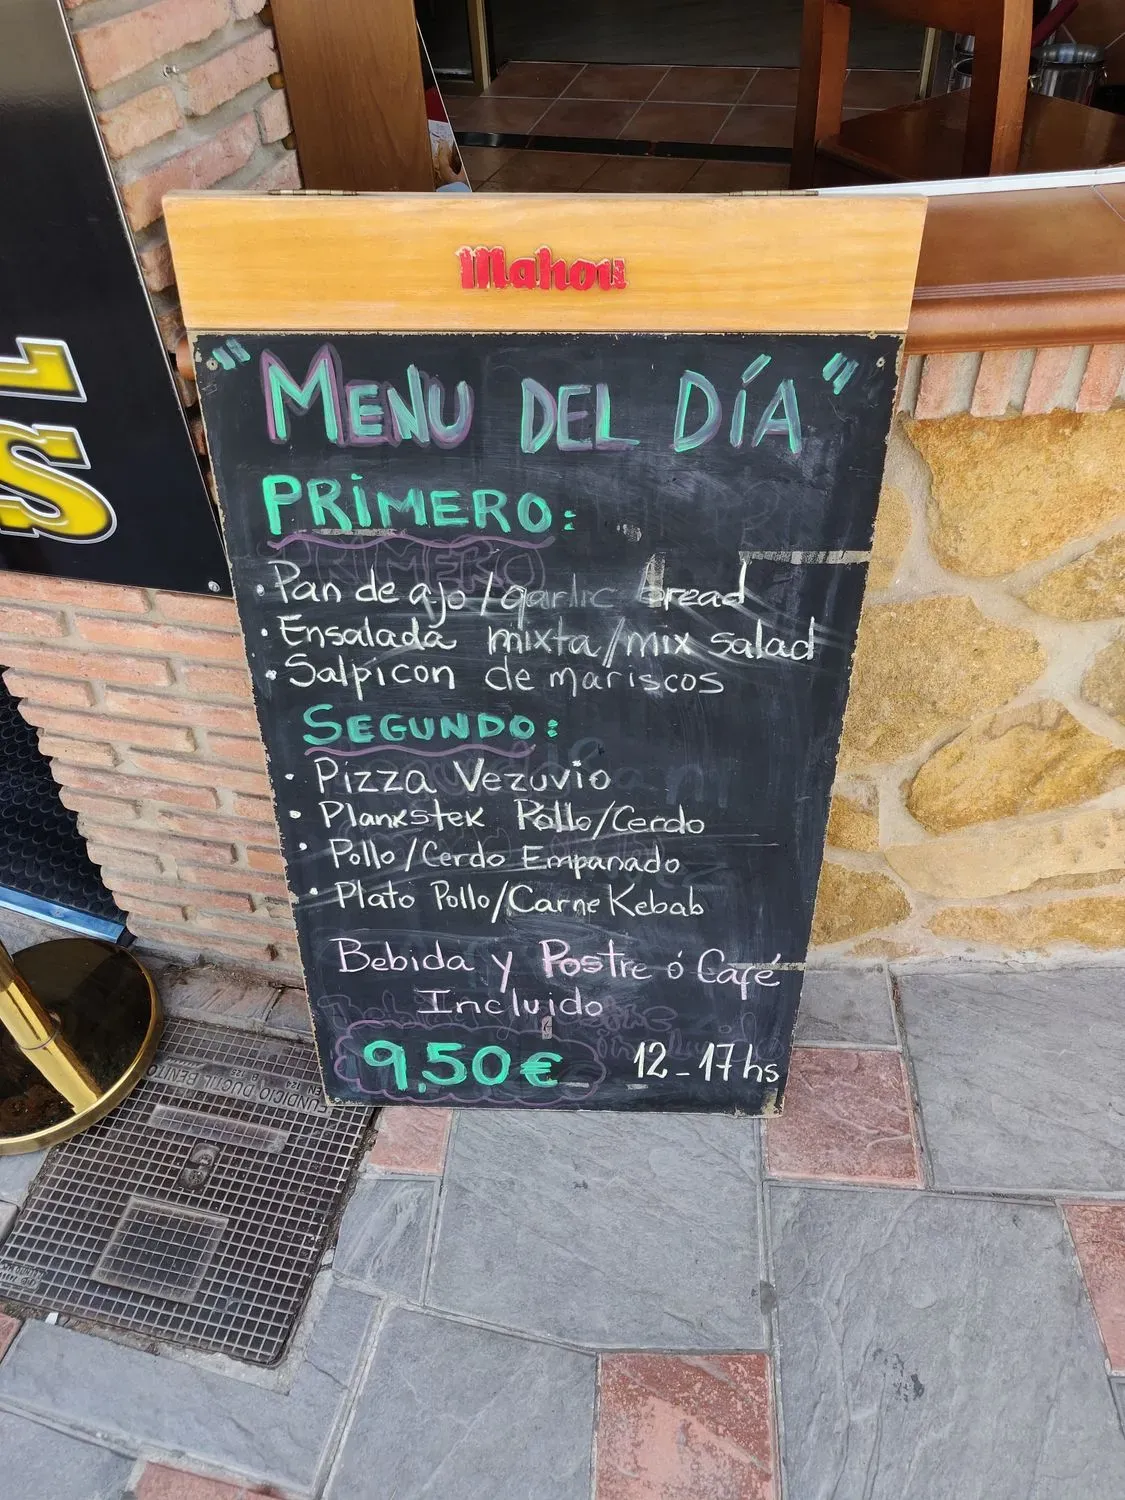 Mahou
"MENU DEL DÍA"
PRIMERO:
· Pan de ajo / garlic bread
· Ensalada mixta/mix salad
· Salpicon de mariscos
SEGUNDO:
· Pizza Vezuvio
· Plankstek Pollo/Cerdo
· Pollo/Cerdo Empanado
· Plato Pollo/Carne Kebab
Bebida y Postre ó Café
Incluido
9,50€ 12-17hs
FUNDICIO DUCTIL BENITO
EN 124